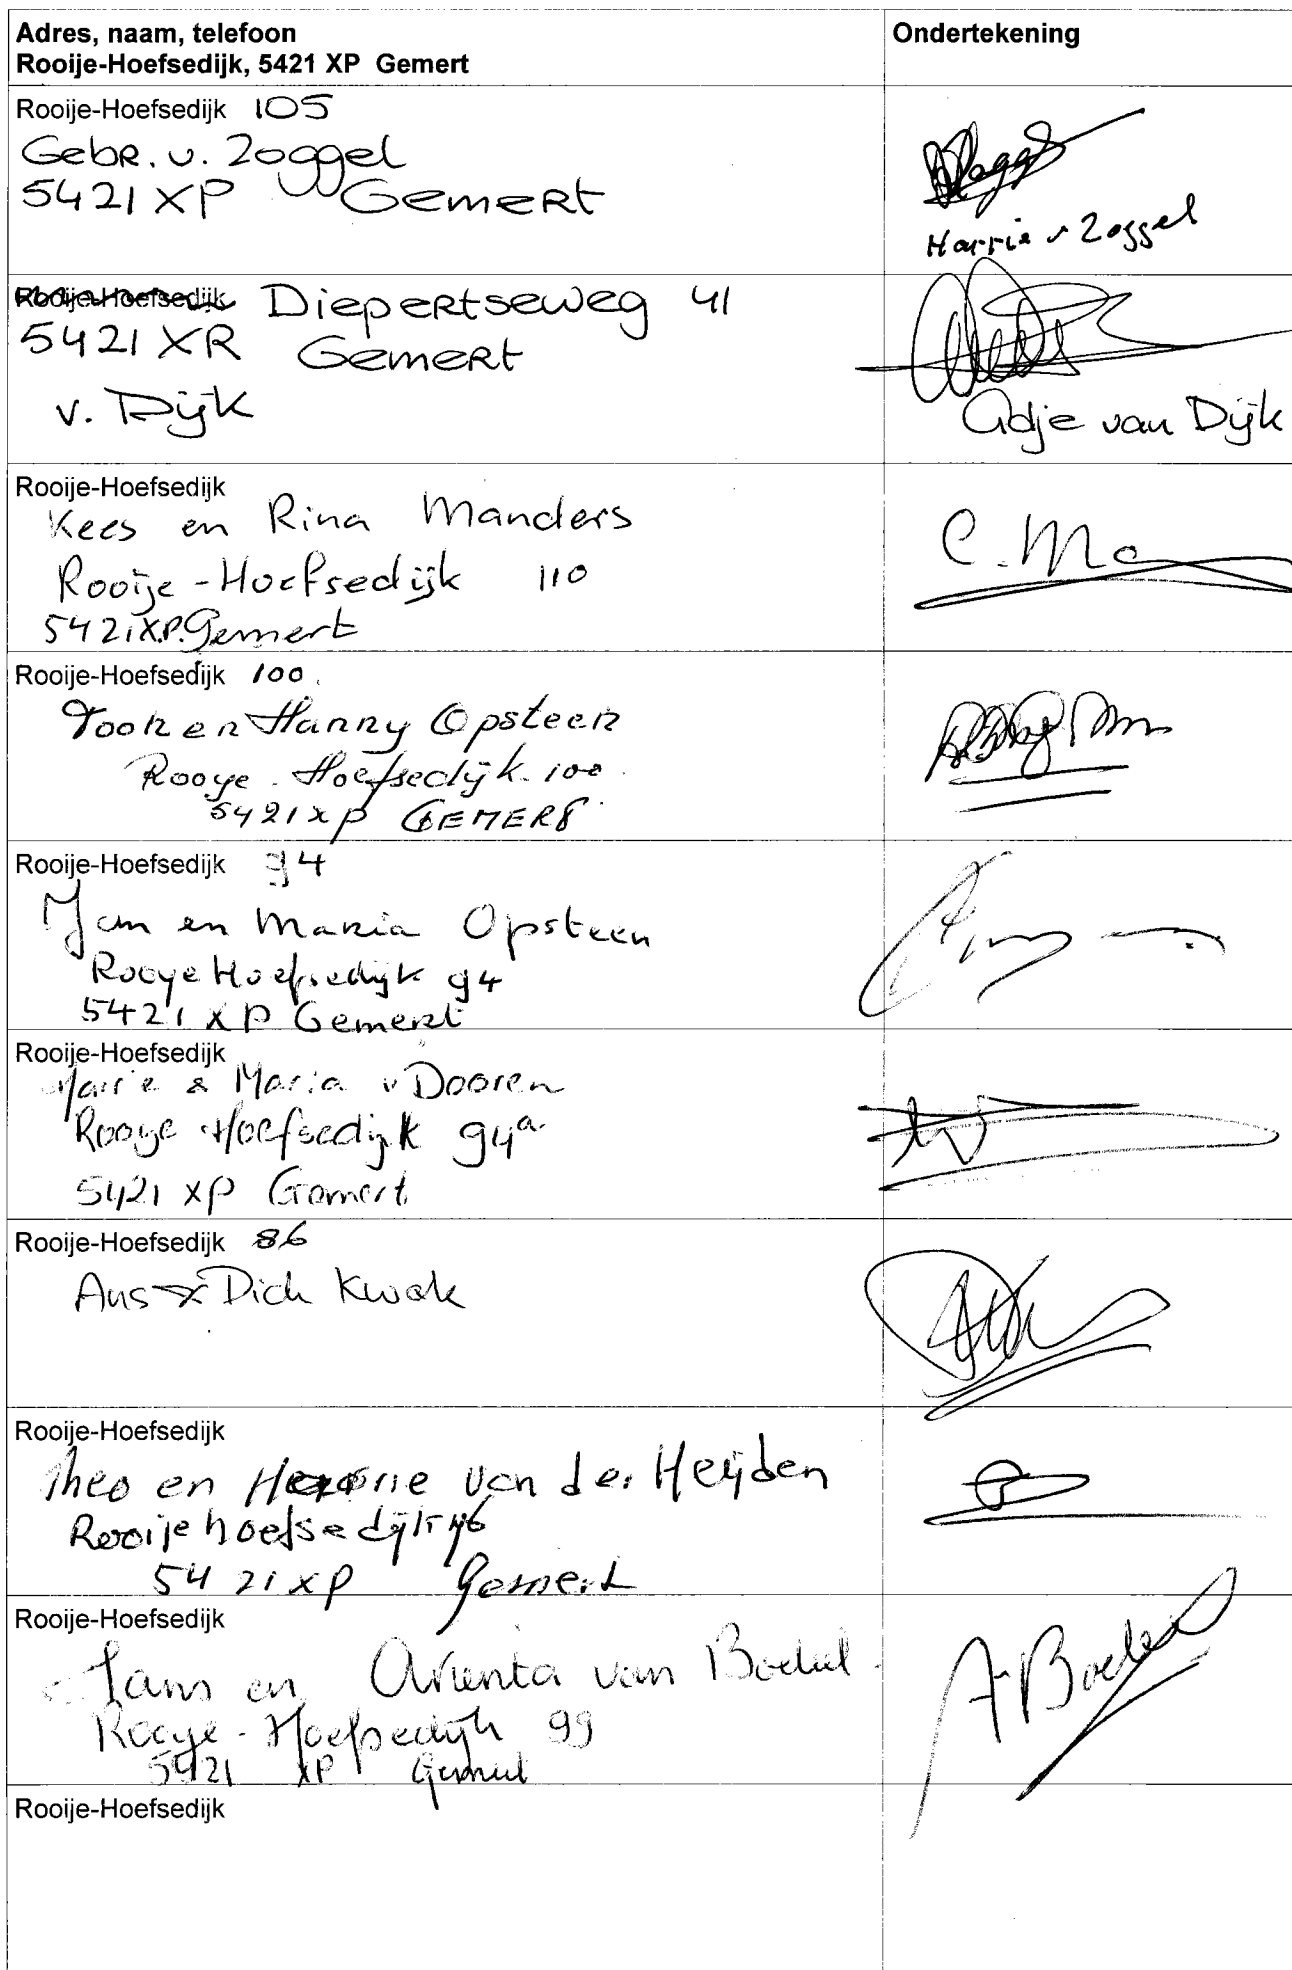 Adres, naam, telefoon
Rooije-Hoefsedijk, 5421 XP Gemert
Ondertekening
Rooije-Hoefsedijk 105
Gebr. v. Zoggel
5421 XP Gemert
Harrie v Zoggel
Rooije-Hoefsedijk Diepertseweg 41
5421 XR Gemert
v. Dijk
Adje van Dijk
Rooije-Hoefsedijk
Kees en Rina Manders
Rooije-Hoefsedijk 110
5421 X.P. Gemert
C. Ma
Rooije-Hoefsedijk 100.
Toon en Hanny Opsteen
Rooye-Hoefsedijk 100.
5421 XP GEMERT
Rooije-Hoefsedijk 94
Jan en Maria Opsteen
Rooye Hoefsedijk 94
5421 XP Gemert
Rooije-Hoefsedijk
& Maria v Dooren
Rooye Hoefsedijk 94a
5421 XP Gemert
Rooije-Hoefsedijk 86
Ans & Dick Kwak
Rooije-Hoefsedijk
Theo en van der Heijden
Rooije hoefsedijk
5421 XP Gemert
Rooije-Hoefsedijk
en van Boekel
Rooye-Hoefsedijk 99
5421 XP Gemert
A Boekel
Rooije-Hoefsedijk